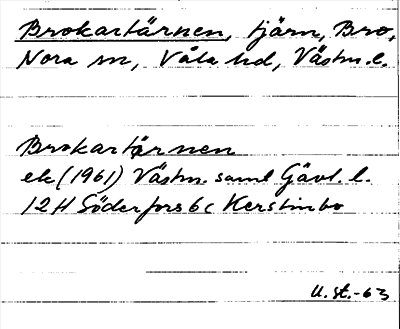 Brokartärnen, tjärn, Bro,
Nora sn, Våla hd, Västm. l.
Brokartärnen
ek (1961) Västm. samt Gävl. l.
12H Söderfors 6c Kerstinbo
U. St. -63